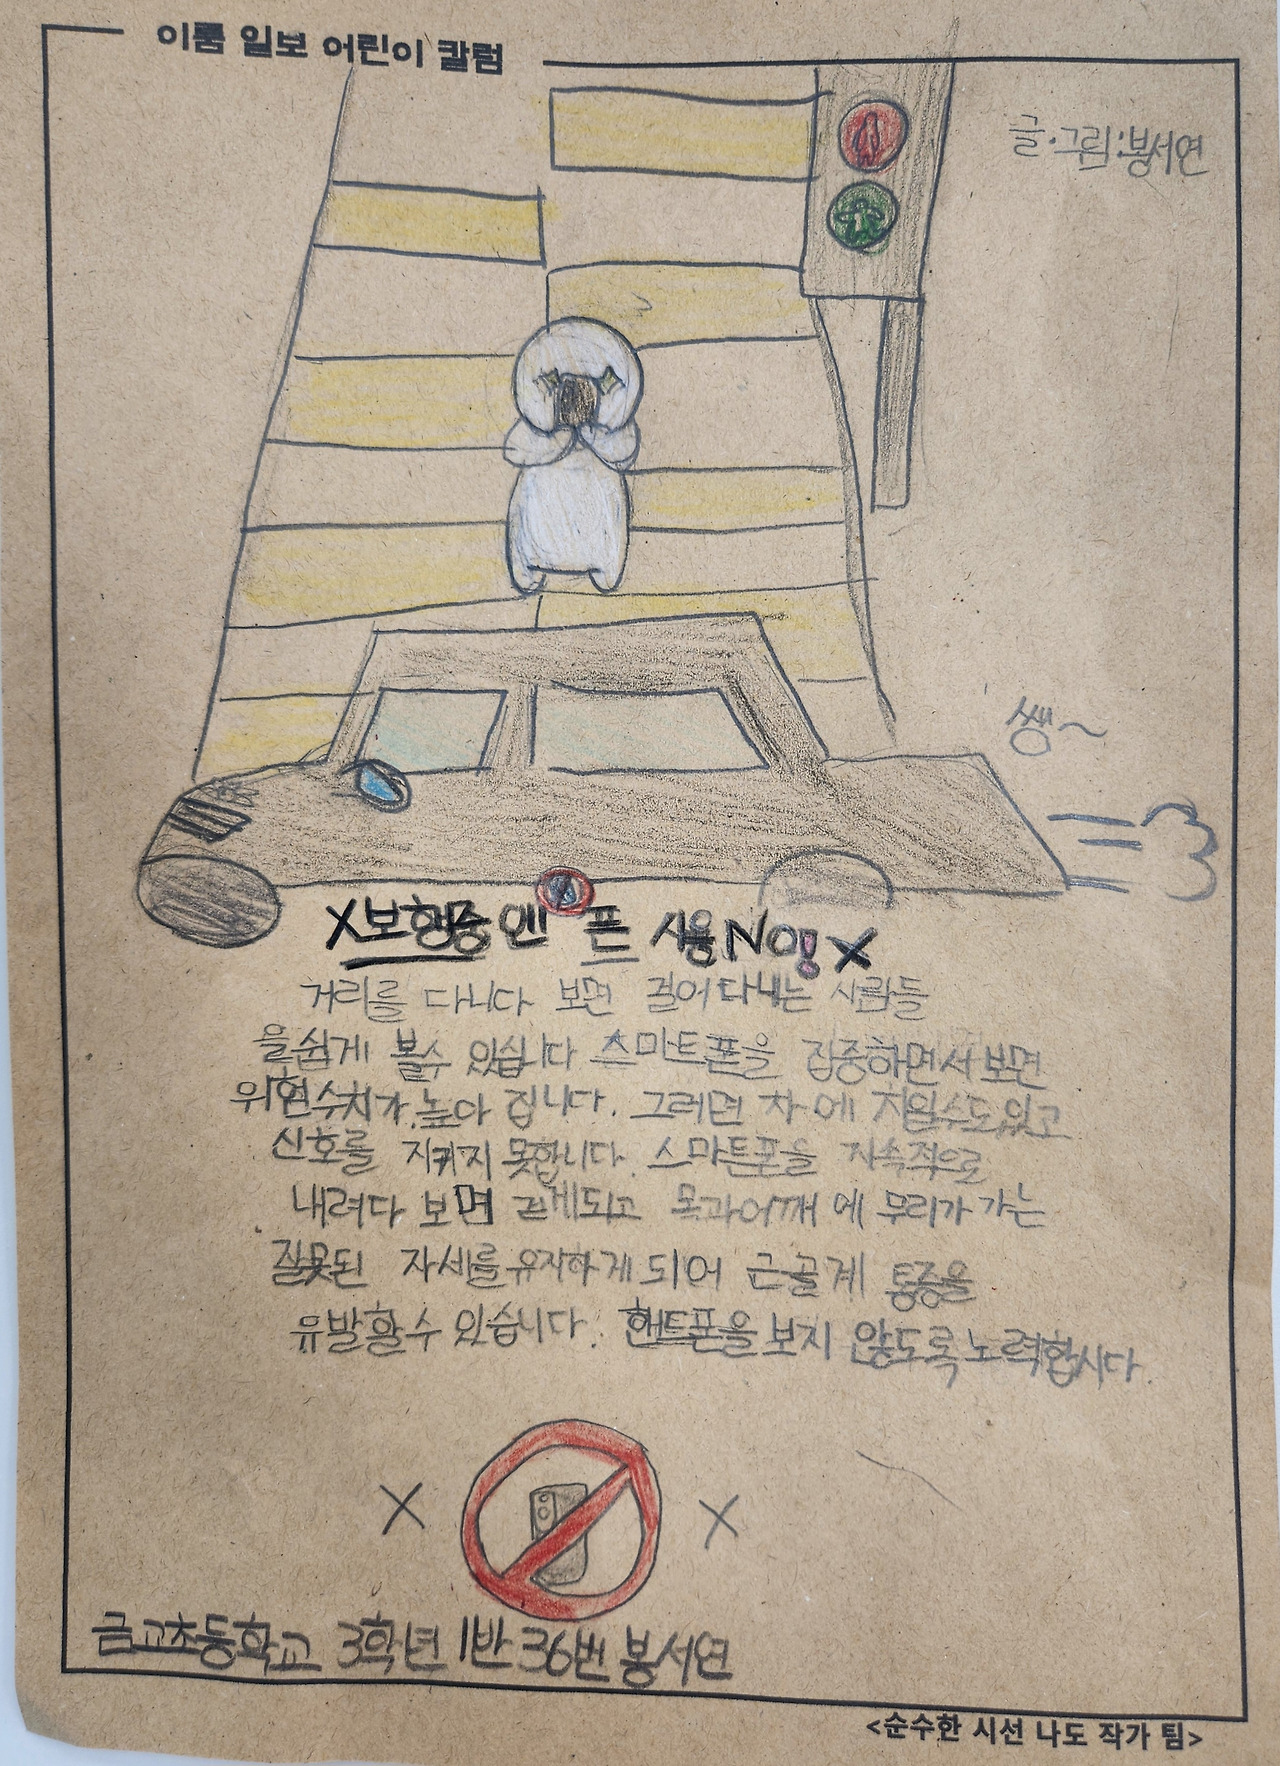 이룸 일보 어린이 칼럼
글·그림:봉서연
쌩~
X보행중엔 폰 사용 NO! X
거리를 다니다 보면 걸어다니는 사람들
을쉽게 볼수 있습니다 스마트폰을 집중하면서 보면
위현수치가 높아 집니다. 그러면 차에 치일수도있고
신호를 지키지 못합니다. 스마튼폰을 지속적으로
내려다 보면 걷게되고 목과어깨 에 무리가 가는
잘못된 자세를 유지하게 되어 근골계 통증을
유발할수 있습니다. 핸드폰을 보지 않도록 노력합시다.
X X
금교초등학교 3학년 1반 36번 봉서연
<순수한 시선 나도 작가 팀>